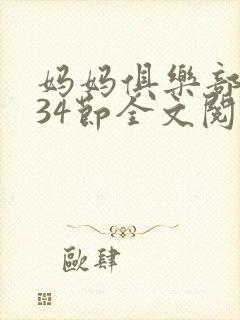 妈妈俱樂部
34節全文閱
歐肆